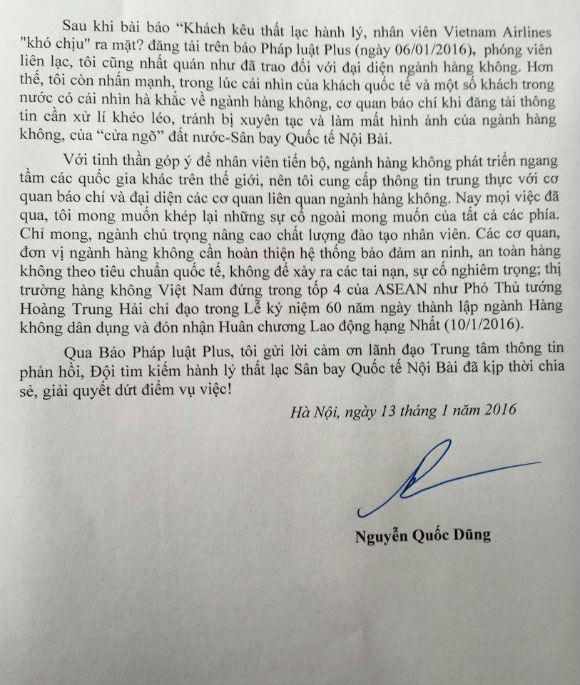 Sau khi bài báo “Khách kêu thất lạc hành lý, nhân viên Vietnam Airlines
"khó chịu" ra mặt? đăng tải trên báo Pháp luật Plus (ngày 06/01/2016), phóng viên
liên lạc, tôi cũng nhất quán như đã trao đổi với đại diện ngành hàng không. Hơn
thế, tôi còn nhấn mạnh, trong lúc cái nhìn của khách quốc tế và một số khách trong
nước có cái nhìn hà khắc về ngành hàng không, cơ quan báo chí khi đăng tải thông
tin cần xử lí khéo léo, tránh bị xuyên tạc và làm mất hình ảnh của ngành hàng
không, của “cửa ngõ” đất nước-Sân bay Quốc tế Nội Bài.
Với tinh thần góp ý để nhân viên tiến bộ, ngành hàng không phát triển ngang
tầm các quốc gia khác trên thế giới, nên tôi cung cấp thông tin trung thực với cơ
quan báo chí và đại diện các cơ quan liên quan ngành hàng không. Nay mọi việc đã
qua, tôi mong muốn khép lại những sự cố ngoài mong muốn của tất cả các phía.
Chỉ mong, ngành chú trọng nâng cao chất lượng đào tạo nhân viên. Các cơ quan,
đơn vị ngành hàng không cần hoàn thiện hệ thống bảo đảm an ninh, an toàn hàng
không theo tiêu chuẩn quốc tế, không để xảy ra các tai nạn, sự cố nghiêm trọng; thị
trường hàng không Việt Nam đứng trong tốp 4 của ASEAN như Phó Thủ tướng
Hoàng Trung Hải chỉ đạo trong Lễ kỷ niệm 60 năm ngày thành lập ngành Hàng
không dân dụng và đón nhận Huân chương Lao động hạng Nhất (10/1/2016).
Qua Báo Pháp luật Plus, tôi gửi lời cảm ơn lãnh đạo Trung tâm thông tin
phản hồi, Đội tìm kiếm hành lý thất lạc Sân bay Quốc tế Nội Bài đã kịp thời chia
sẻ, giải quyết dứt điểm vụ việc!
Hà Nội, ngày 13 tháng 1 năm 2016
Nguyễn Quốc Dũng